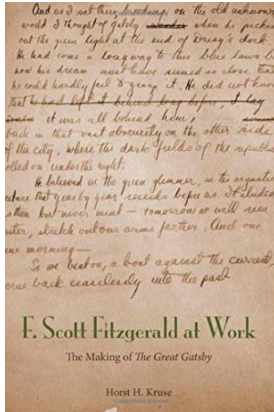 And as I sat there brooding on the old unknown
world I thought of Gatsby when he picked
out the green light at the end of Daisy's dock.
He had come a long way to this blue lawn
his dream must have seemed so close
he could hardly fail to grasp it. He did not know
that he had left it behind long before, I say
it was all behind him,
back in that vast obscurity on the other side
of the city, where the dark fields of the republic
rolled on under the night.
He believed in the green glimmer, in the orgastic
future that year by year recedes before us. It eluded
us then but never mind — tomorrow we will run
faster, stretch out our arms farther. And one
fine morning—
So we beat on, a boat against the current,
borne back ceaselessly into the past
F. Scott Fitzgerald at Work
The Making of The Great Gatsby
Horst H. Kruse